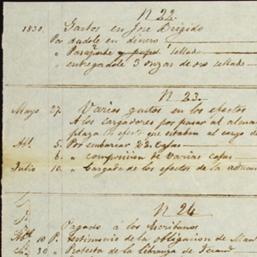 N 22.
1830. Gastos en José Brigido
Por dadole en dinero
" Pasaporte y papel sellado
" entregadole 3 onzas de oro sellado
N 23.
Mayo 27. Varios gastos en los efectos
A los cargadores por pasar al almacen
plaza efectos que estaban al cargo de
5. Por embarcar 22 cajas
6. " composicion de varias cajas
Julio 10. " Cargada de los efectos de la aduana
N 24.
Pagado a los Escribanos
10 P. testimonio de la obligacion de
30 " Protesta de la libranza de